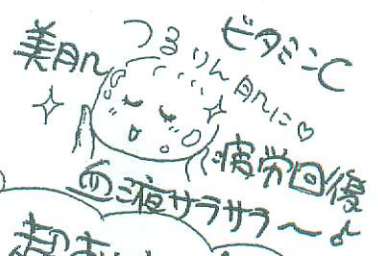 美肌
つるりん肌に♡
ビタミンC
疲労回復
血液サラサラ〜♪